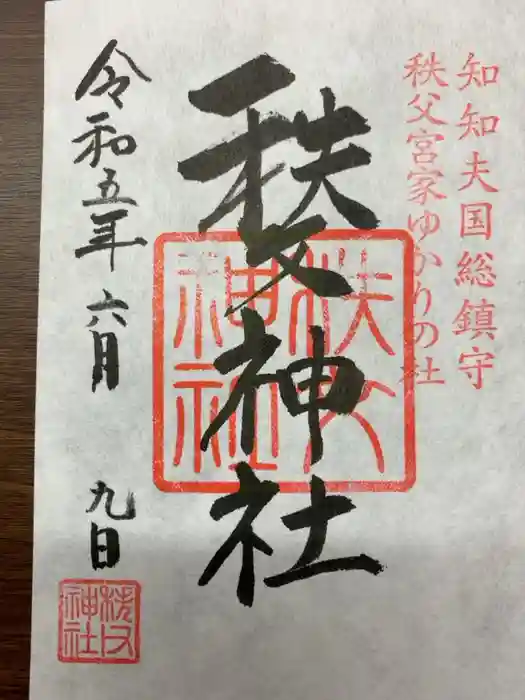 知知夫国総鎮守
秩父宮家ゆかりの社
秩父神社
秩父
神社
令和五年六月九日
秩父
神社